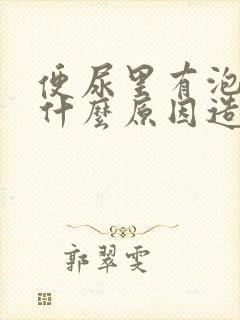 便尿里有泡
什麼原因造
郭翠雯